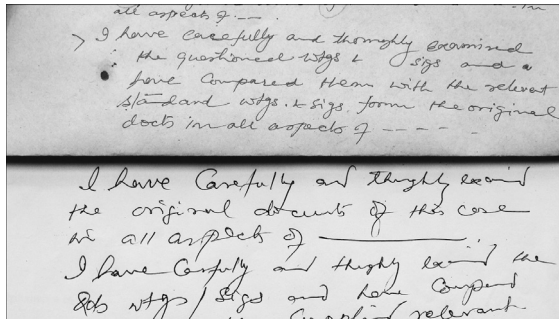 all aspects of ---
I have carefully and thoroughly examined
the questioned wtgs & sigs and a
have Compared them with the relevent
standard wtgs. & sigs. form the original
docts in all aspects of -----
I have Carefully and thughly examind
the original documents of this case
in all aspects of ———
I have Carfully and thughly examind the
wtgs / Sigs and have Compared
relevant